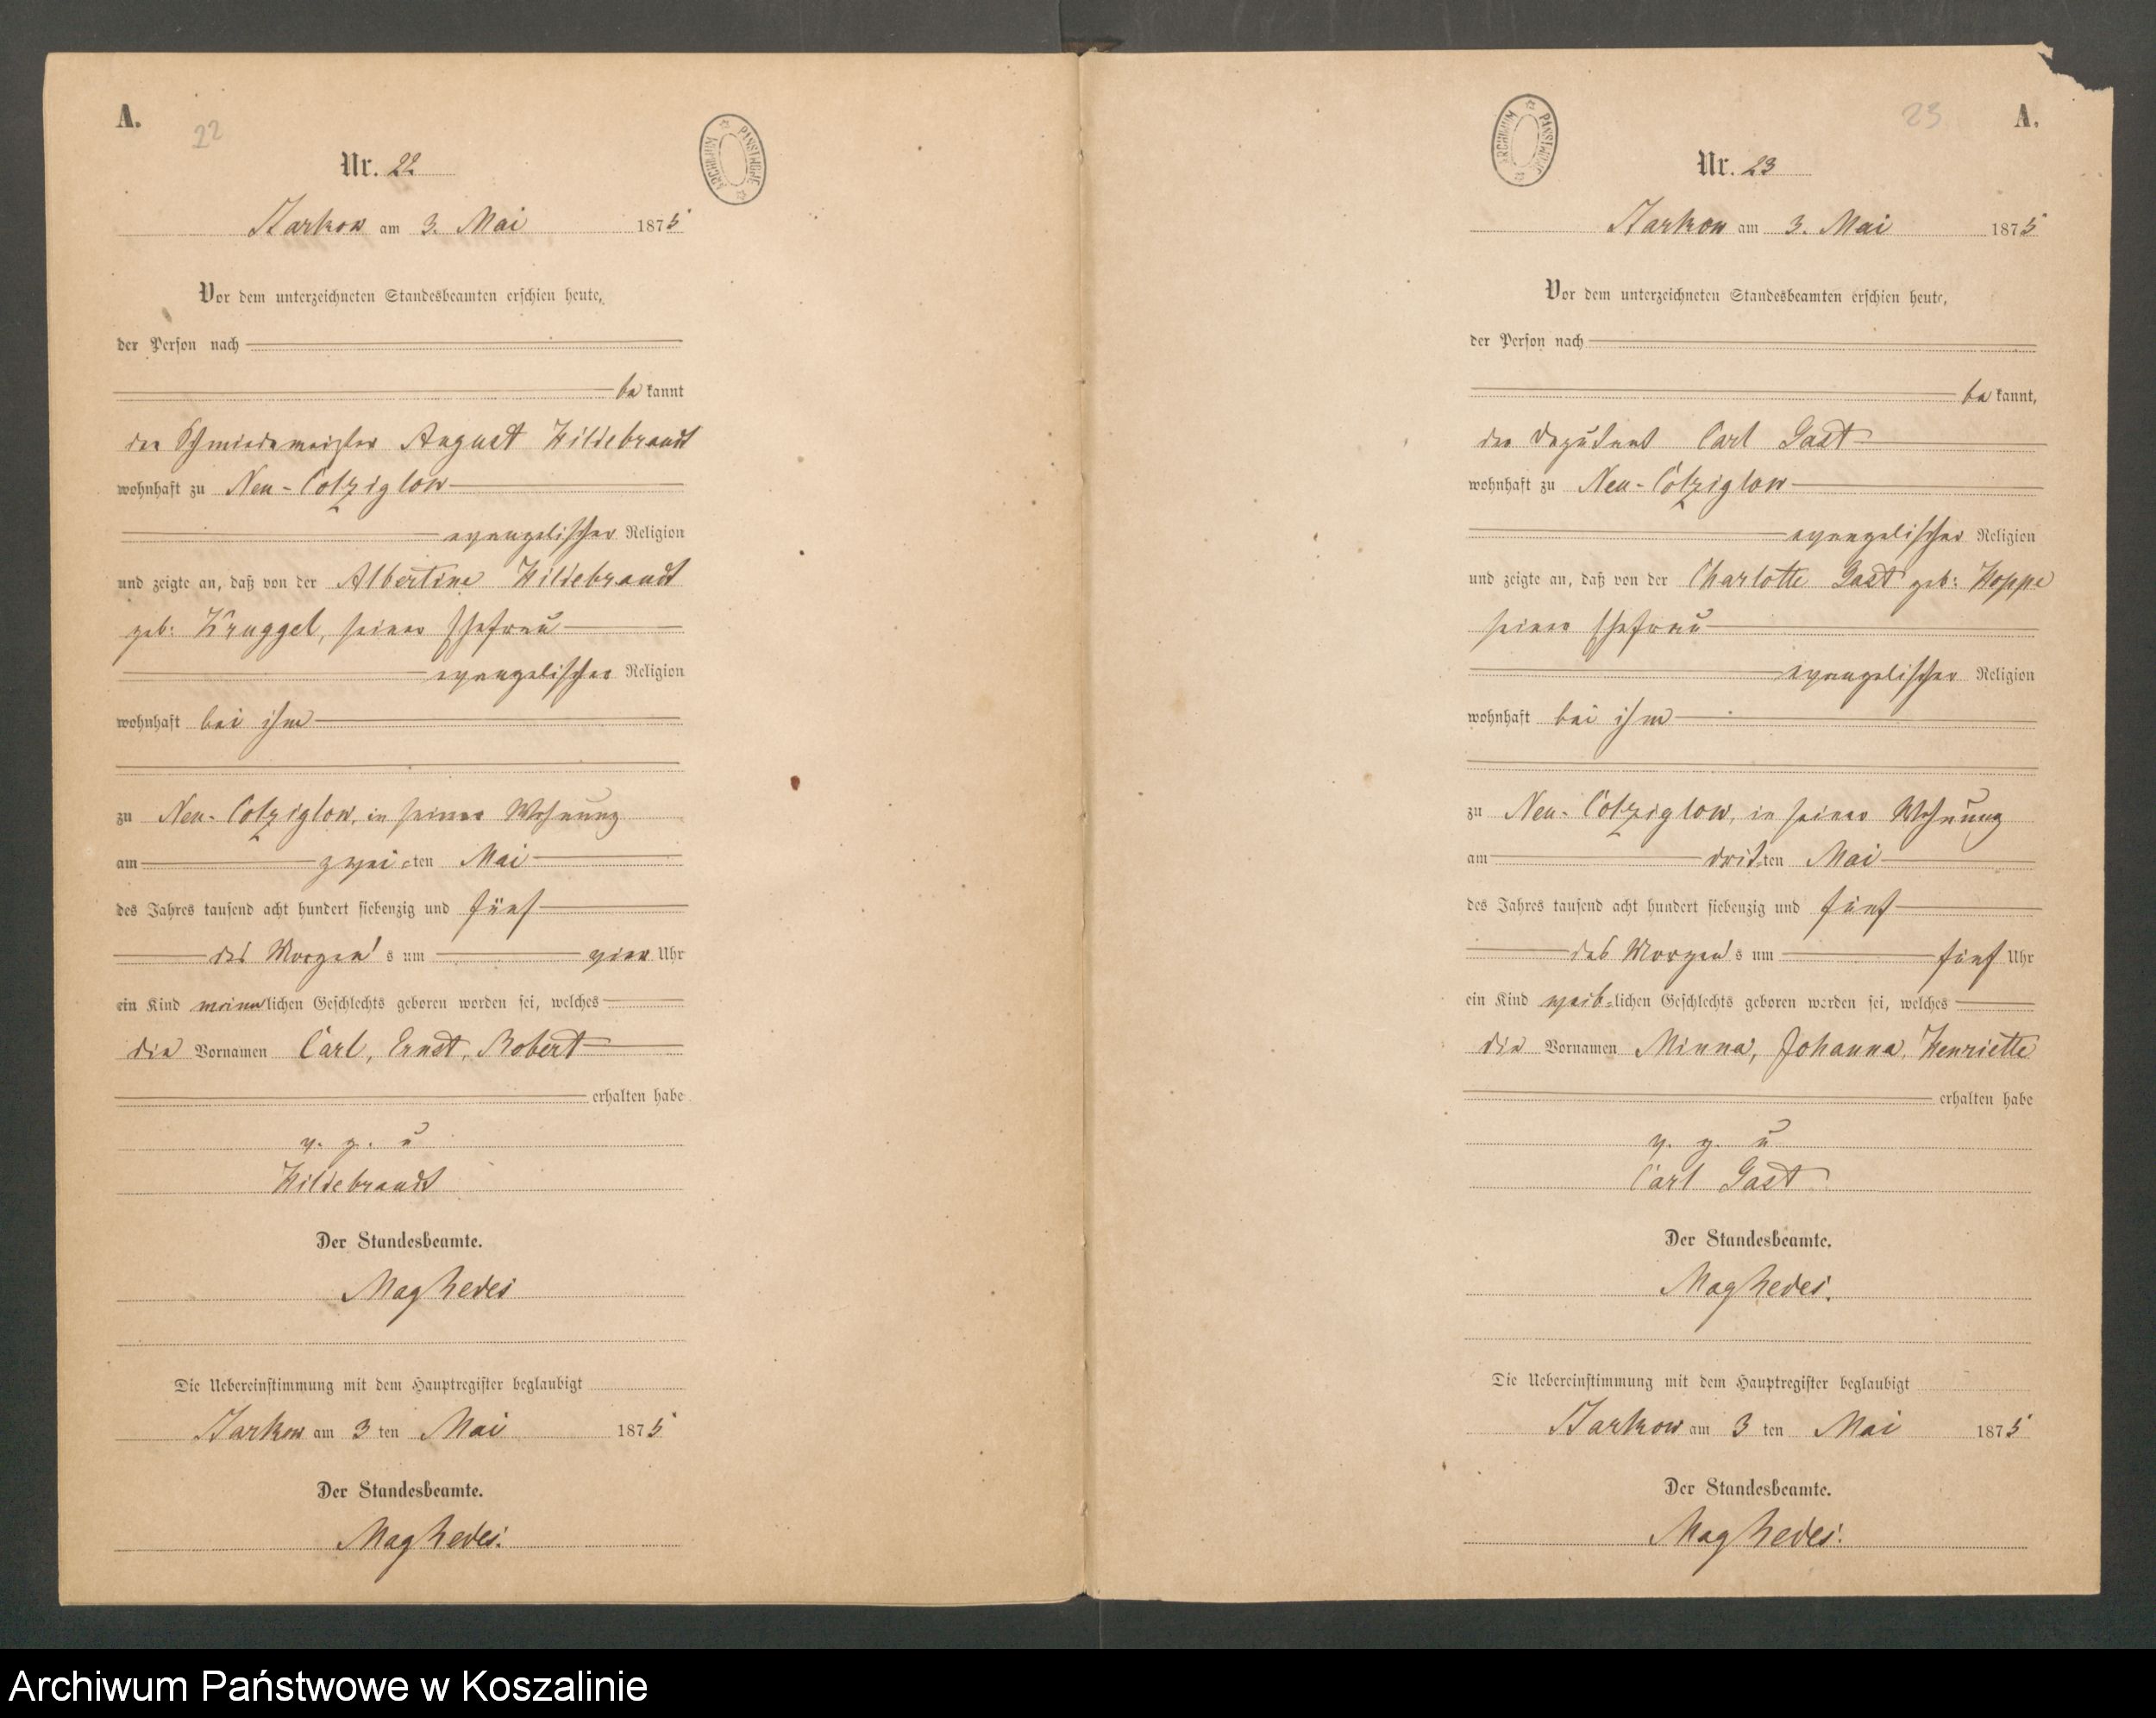 A.
22
Nr. 22
ARCHIWUM PAŃSTWOWE
Starkow am 3. Mai 1875
Vor dem unterzeichneten Standesbeamten erschien heute,
der Person nach
be kannt
der Schmiedemeister August Hildebrandt
wohnhaft zu Neu-Colziglow
evangelischer Religion
und zeigte an, daß von der Albertine Hildebrandt
geb: Kruggel, seiner Ehefrau
evangelischer Religion
wohnhaft bei ihm
zu Neu-Colziglow, in seiner Wohnung
am zwei-ten Mai
des Jahres tausend acht hundert siebenzig und fünf
des Morgen's um vier Uhr
ein Kind männlichen Geschlechts geboren worden sei, welches
die Vornamen Carl, Ernst, Robert
erhalten habe
v. g. u
Hildebrandt
Der Standesbeamte.
Die Uebereinstimmung mit dem Hauptregister beglaubigt
Starkow am 3 ten Mai 1875
Der Standesbeamte.
23
A.
Nr. 23
ARCHIWUM PAŃSTWOWE
Starkow am 3. Mai 1875
Vor dem unterzeichneten Standesbeamten erschien heute,
der Person nach
be kannt,
der Deputant Carl Gast
wohnhaft zu Neu-Colziglow
evangelischer Religion
und zeigte an, daß von der Charlotte Gast geb: Hoppe
seiner Ehefrau
evangelischer Religion
wohnhaft bei ihm
zu Neu-Colziglow, in seiner Wohnung
am drit-ten Mai
des Jahres tausend acht hundert siebenzig und fünf
des Morgen's um fünf Uhr
ein Kind weib-lichen Geschlechts geboren worden sei, welches
die Vornamen Minna, Johanna, Henriette
erhalten habe
v. g. u
Carl Gast
Der Standesbeamte.
Die Uebereinstimmung mit dem Hauptregister beglaubigt
Starkow am 3 ten Mai 1875
Der Standesbeamte.
Archiwum Państwowe w Koszalinie